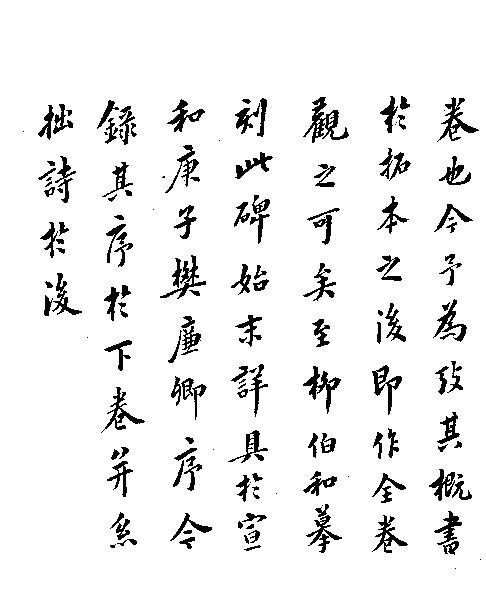 卷也今予為攷其概書
於拓本之後即作全卷
觀之可矣至柳伯和摹
刻此碑始末詳具於宣
和庚子樊廉卿序今
錄其序於下卷并系
拙詩於後